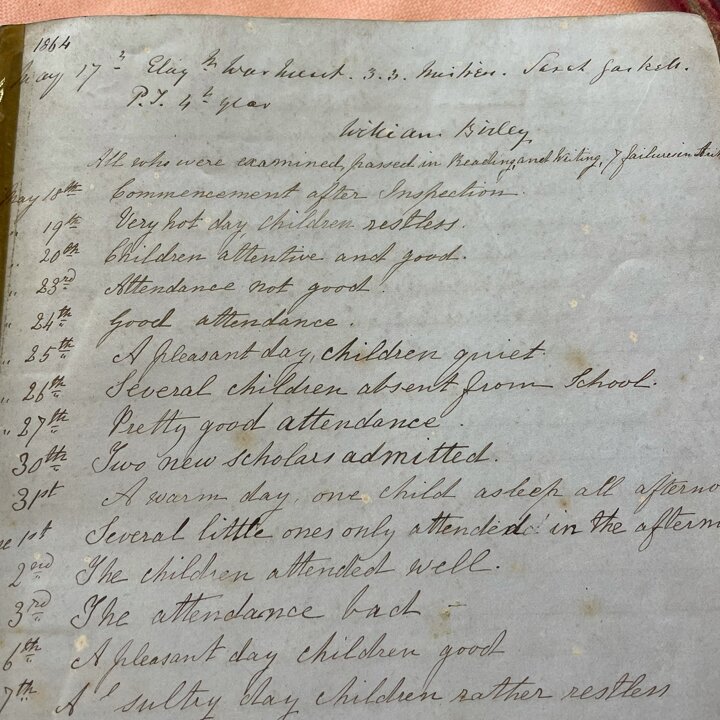 1864
May 17th
P.T. 4th year
William Birley
All who were examined, passed in Reading, and Writing, 7 failures in
May 18th Commencement after Inspection.
" 19th Very hot day, children restless.
" 20th Children attentive and good.
" 23rd Attendance not good.
" 24th Good attendance.
" 25th A pleasant day, children quiet.
" 26th Several children absent from School.
" 27th Pretty good attendance.
30th Two new scholars admitted.
31st A warm day, one child asleep all afterno
ne 1st Several little ones only attended in the aftern
2nd The children attended well.
3rd The attendance bad -
6th A pleasant day children good
7th A sultry day children rather restless